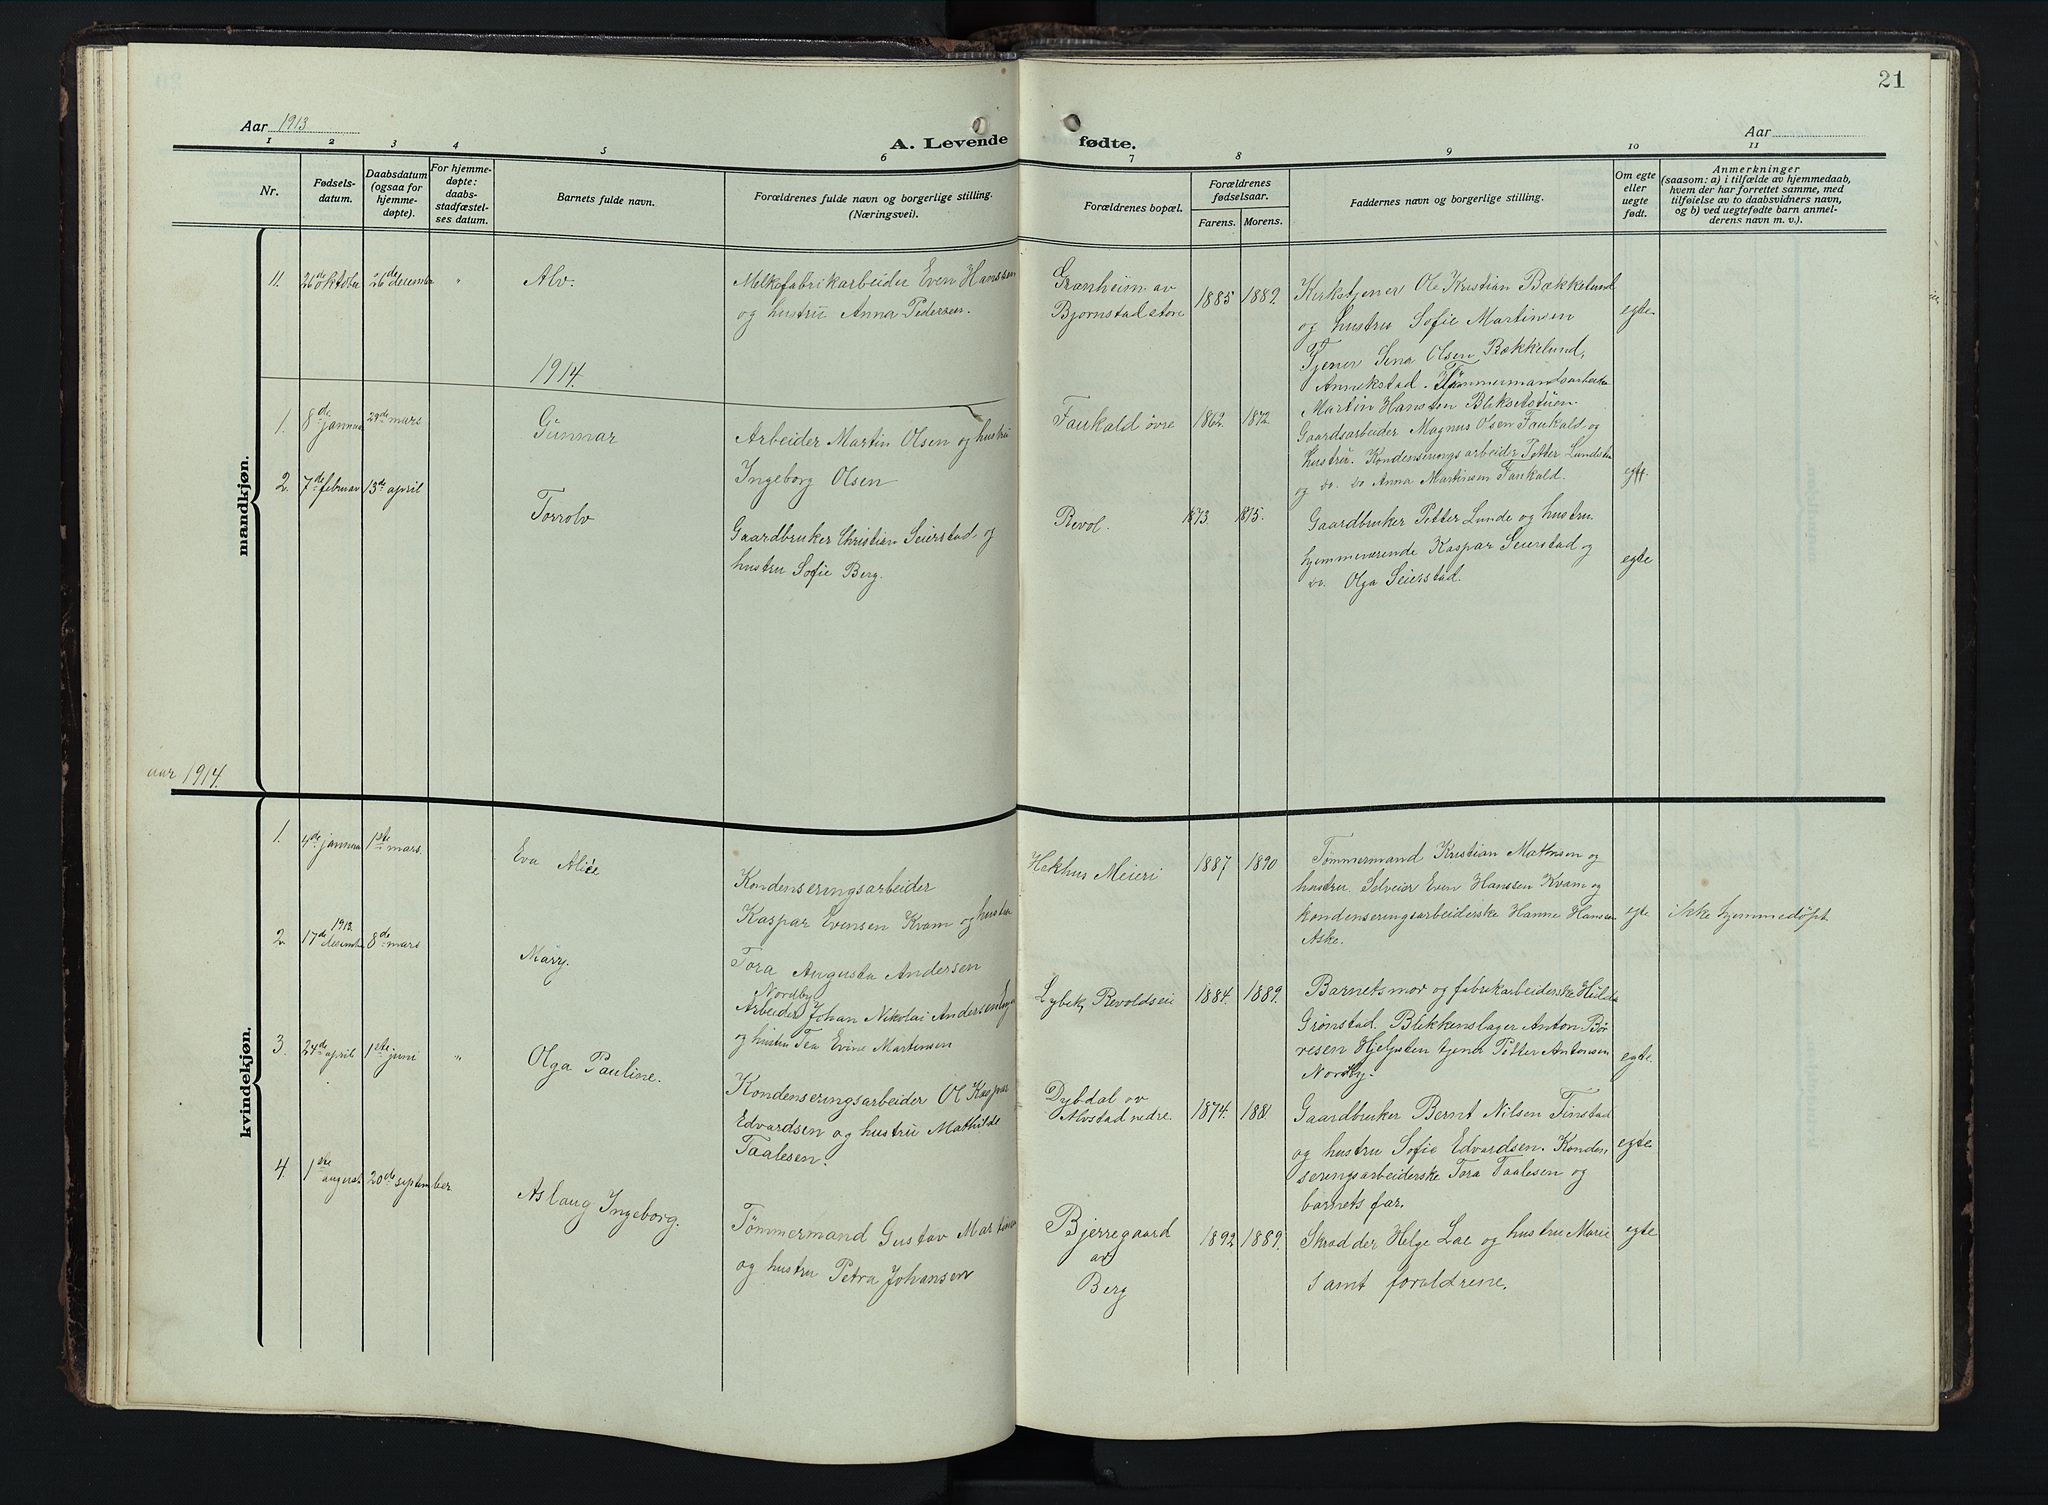 21
Aar 1913
A. Levende fødte.
Aar
1 2 3 4 5 6 7 8 9 10 11
Nr.
Fødsels-
datum.
Daabsdatum
(ogsaa for
hjemme-
døpte).
For hjemme-
døpte:
daabs-
stadfæstel-
ses datum.
Barnets fulde navn.
Forældrenes fulde navn og borgerlige stilling.
(Næringsvei).
Forældrenes bopæl.
Forældrenes
fødselsaar.
Farens. Morens.
Faddernes navn og borgerlige stilling.
Om egte
eller
uegte
født.
Anmerkninger
(saasom: a) i tilfælde av hjemmedaab,
hvem der har forrettet samme, med
tilføielse av to daabsvidners navn,
og b) ved uegtefødte barn anmel-
derens navn m. v.).
mandkjøn.
11. 26de oktober 26de december " Alv.
Melkefabrikarbeider Even Hanssen
og hustru Anna Pedersen.
Grønheim av
Bjørnstad store
1885 1889.
Kirketjener Ole Kristian Bækkelund
og hustru Sofie Martinsen
Tjener Lena Olsen Bækkelund,
Annekstad. Tømmermandsarbeider
Martin Hansen Bliksetstuen.
egte
1914.
1. 8de januar 29de mars Gunnar
Arbeider Martin Olsen og hustru
Ingeborg Olsen
Faukald øvre
1862. 1872.
Gaardsarbeider Magnus Olsen Faukald og
hustru. Kondenseringsarbeider Petter Lundsten
og do. do Anna Martinsen Faukald.
egte
2. 7de februar 13de april Torrolv
Gaardbruker Christian Seierstad og
hustru Sofie Berg.
Revol.
1873. 1875.
Gaardbruker Petter Lunde og hustru.
hjemmeværende Kaspar Seierstad og
do. Olga Seierstad.
egte
aar 1914.
kvindekjøn.
1. 4de januar 1ste mars. Eva Alice
Kondenseringsarbeider
Kaspar Evensen Kvam og hustru
Tora Augusta Andersen
Nordby
Hekhus Meieri
1887 1890
Tømmermand Kristian Mathisen og
hustru. Selveier Even Hanssen Kvam og
kondenseringsarbeiderske Hanne Hansen
Aske.
egte
ikke hjemmedøpt
2. 1913. 17de desember 8de mars Marry.
Arbeider Johan Nikolai Andersen
og hustru Tea Evine Martinsen
Lybek, Revoldseie
1884. 1889.
Barnets mor og fabrikarbeiderske Hilda
Grønstad. Blikkenslager Anton Bø-
resen Hjeljsten tjener Petter Antonsen
Nordby.
egte.
3. 24de april 1ste juni " Olga Pauline.
Kondenseringsarbeider Ol Kaspar
Edvardsen og hustru Mathilde
Taalesen.
Dybdal av
Alvstad nedre.
1874. 1881
Gaardbruker Bernt Nilsen Finstad
og hustru Sofie Edvardsen. Konden
seringsarbeiderske Tora Taalesen og
barnets far.
egte
4. 1ste august 20de september Aslaug Ingeborg.
Tømmermand Gustav Martinsen
og hustru Petra Johansen
Bjerregaard
av
Berg
1892 1889.
Skrædder Helge Lae og hustru Marie
samt forældrene.
egte